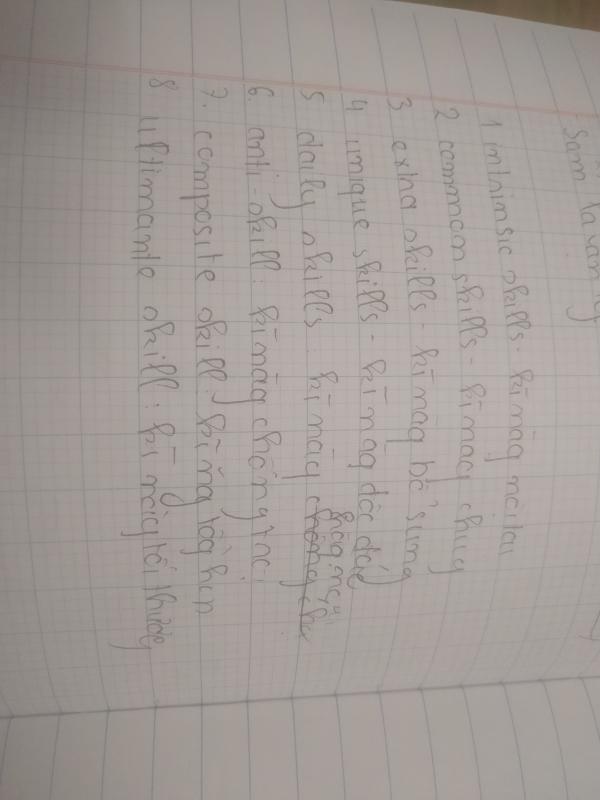 1 intrinsic skills - kĩ năg nội tại
2 common skills - kĩ năg chug
3 extra skills - kĩ năg bổ sung
4 unique skills - kĩ năg độc đáo
5 daily skills: kĩ năg hàg ngày
6. anti-skill: kĩ năg chống
7. composite skill: kĩ năg tổg hợp
8 ultimante skill: kĩ năg tối thượg